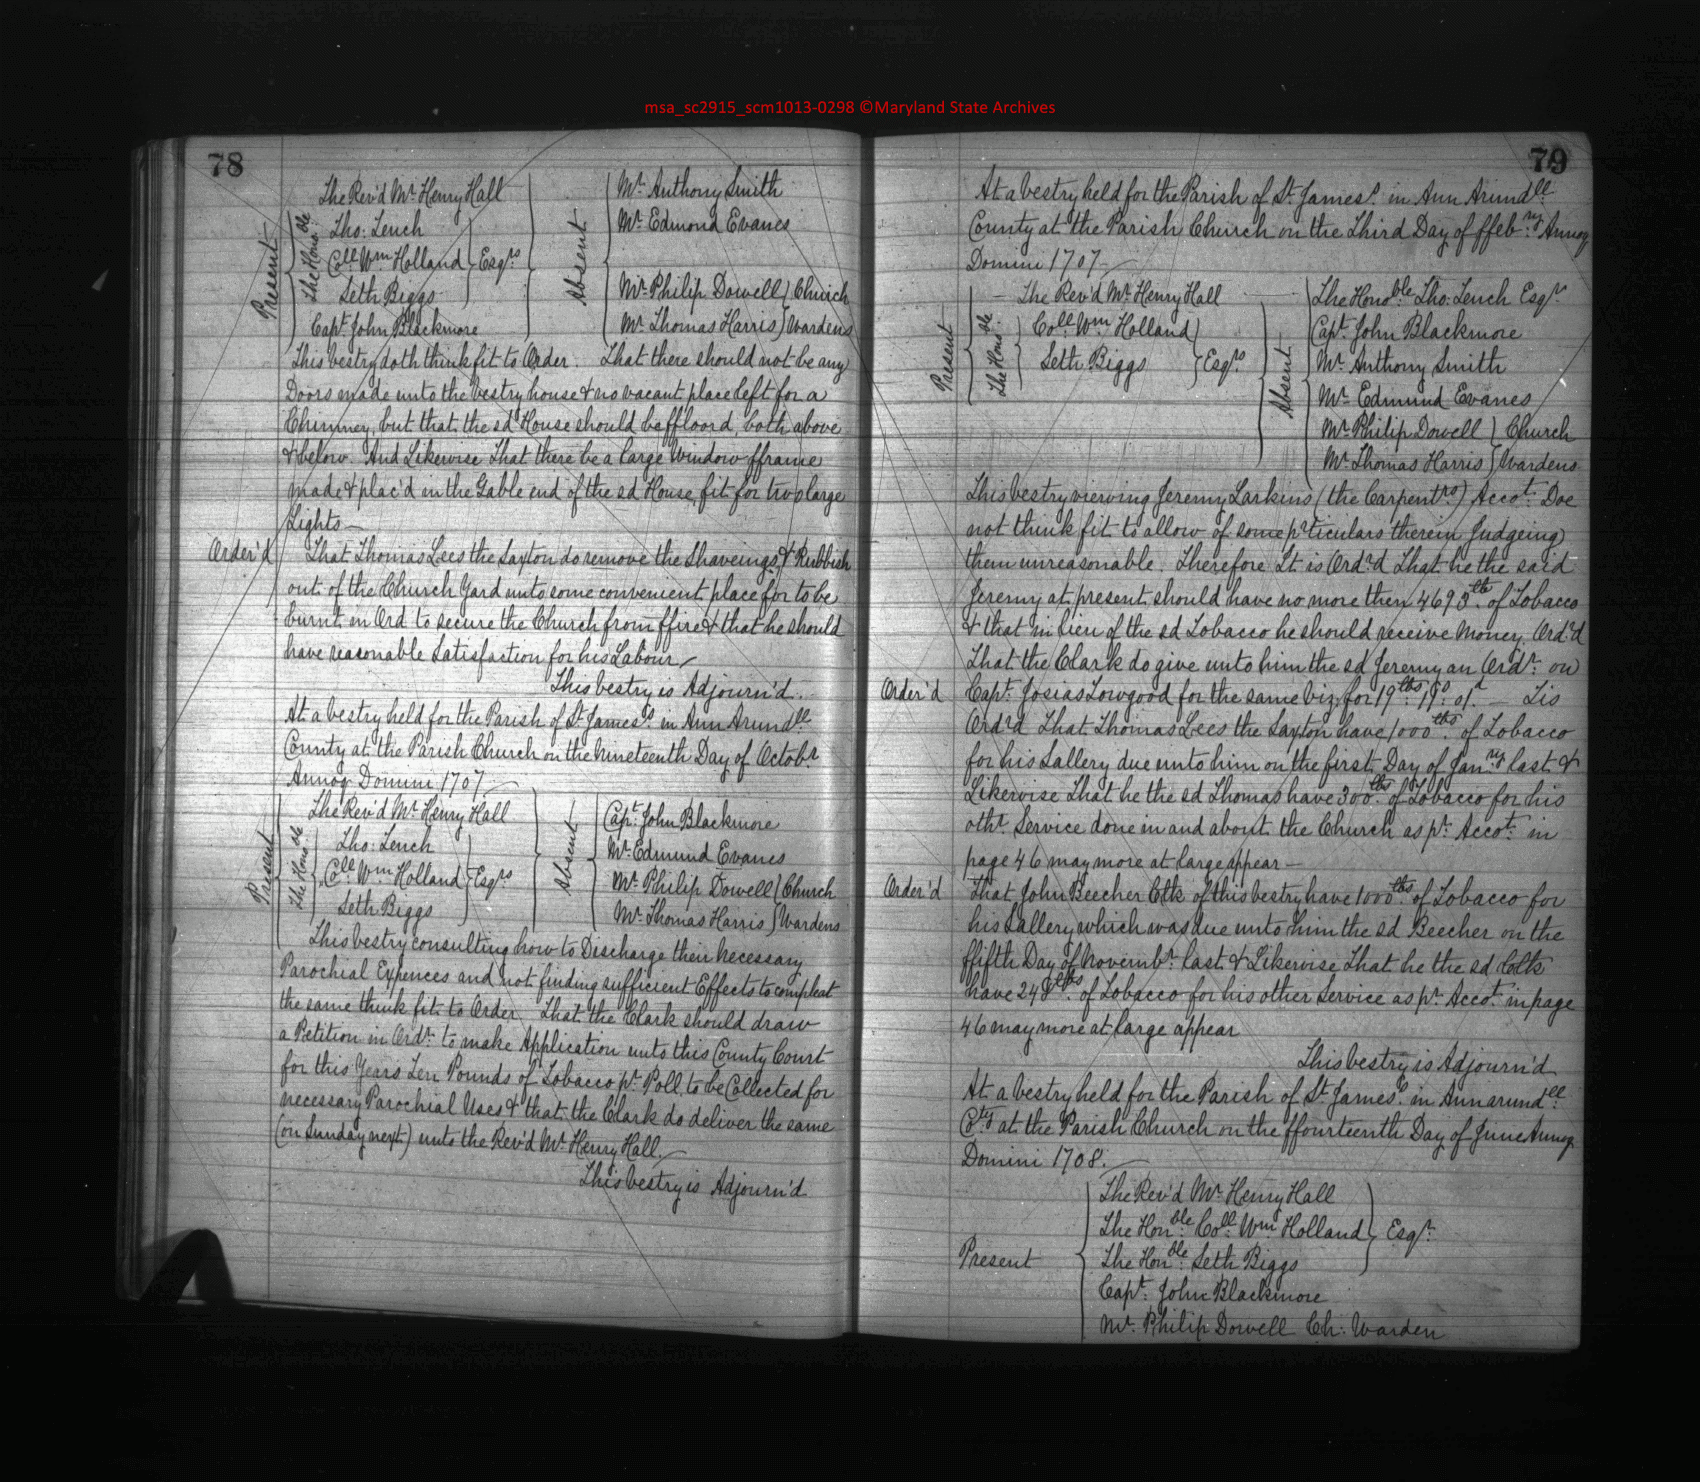 msa_sc2915_scm1013-0298 ©Maryland State Archives
78
Present
The Rev'd Mr. Henry Hall
The Hono.ble
Tho: Tench
Coll Wm Holland
Seth Biggs
Esqrs
Capt. John Blackmore
Absent
Mr. Anthony Smith
Mr. Edmond Evanes
Mr. Philip Dowell
Mr. Thomas Harris
Church
Wardens
This vestry doth think fit to Order. That there should not be any
Doors made unto the vestry house & no vacant place left for a
Chimney, but that the sd House should be ffloord, both above
& below. And Likewise That there be a large Window fframe
made & plac'd in the Gable end of the sd House, fit for two large
Lights—
Order'd
That Thomas Lees the Saxton do remove the Shaveings & Rubbish
out of the Church Yard unto some convenient place for to be
burnt in Ord to secure the Church from ffire & that he should
have reasonable Satisfaction for his Labour
This vestry is Adjourn'd.
At a vestry held for the Parish of St. James's in Ann Arundll
County at the Parish Church on the Nineteenth Day of Octobr
Annoq Domini 1707
Present
The Rev'd Mr. Henry Hall
The Hono.ble
Tho: Tench
Coll Wm Holland
Seth Biggs
Esqrs
Absent
Capt. John Blackmore
Mr. Edmund Evanes
Mr. Philip Dowell
Mr. Thomas Harris
Church
Wardens
This vestry consulting how to Discharge their necessary
Parochial Expences and not finding sufficient Effects to compleat
the same think fit to Order. That the Clark should draw
a Petition in Ordr. to make Application unto this County Court
for this Years Ten Pounds of Tobacco pr. Poll, to be Collected for
necessary Parochial Uses & that the Clark do deliver the same
(on Sunday next) unto the Rev'd Mr. Henry Hall.
This vestry is Adjourn'd
79
At a vestry held for the Parish of St. James's in Ann Arundll
County at the Parish Church on the Third Day of ffebry Annoq
Domini 1707
Present
The Rev'd Mr. Henry Hall
The Hono.ble
Coll Wm Holland
Seth Biggs
Esqrs
Absent
The Honoble Tho: Tench Esqr
Capt. John Blackmore
Mr. Anthony Smith
Mr. Edmund Evanes
Mr. Philip Dowell
Mr. Thomas Harris
Church
Wardens
This vestry viewing Jeremy Larkins (the Carpentrs) Accot. Doe
not think fit to allow of some pticulars therein Judgeing
them unreasonable. Therefore It is Ordrd That he the said
Jeremy at present should have no more then 4693 lb of Tobacco
& that in lieu of the sd Tobacco he should receive Money Ordrd
That the Clark do give unto him the sd Jeremy an Ordr. on
Order'd
Capt. Josias Towgood for the same viz for 19lbs 11s 01d — Tis
Ordrd That Thomas Lees the Saxton have 1000lbs of Tobacco
for his Sallery due unto him on the first Day of Janry last &
Likewise That he the sd Thomas have 300lbs of Tobacco for his
othr Service done in and about the Church as pr. Accot. in
page 46 may more at large appear—
Order'd
That John Beecher Clk of this vestry have 1000lbs of Tobacco for
his Sallery which was due unto him the sd Beecher on the
ffifth Day of Novembr. last & Likewise That he the sd Clk
have 248lbs. of Tobacco for his other Service as pr. Accot. in page
46 may more at large appear
This vestry is Adjourn'd
At a vestry held for the Parish of St. James's in Annarundll
Cty at the Parish Church on the ffourteenth Day of June Annoq
Domini 1708.
Present
The Rev'd Mr. Henry Hall
The Honble Coll Wm Holland
The Honble Seth Biggs
Esqr.
Capt. John Blackmore
Mr. Philip Dowell Ch: Warden